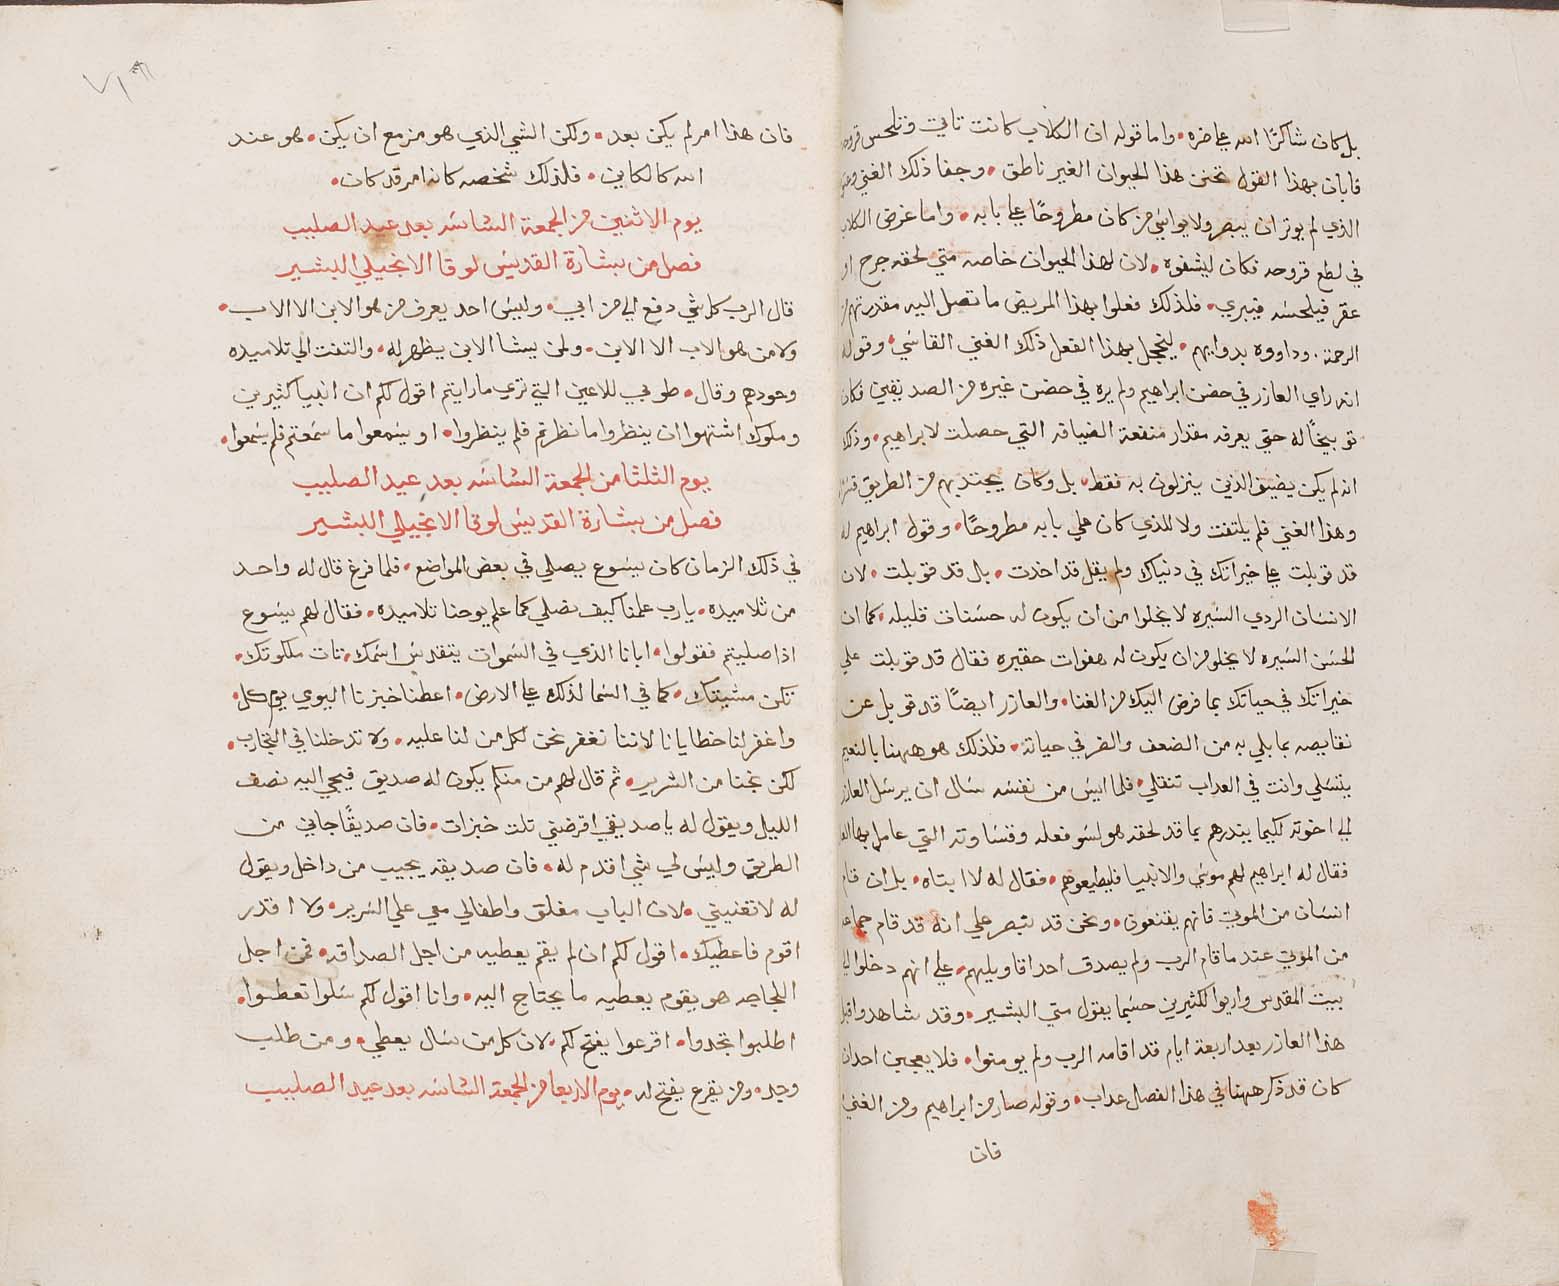 بل كان شاكرًا الله علي ضره • واما قوله ان الكلاب كانت تاتي وتلحس قروحه
فابان بهذا القول تحنن هذا الحيوان الغير ناطق • وجفا ذلك الغني
الذي لم يوثر ان يبصر ولا يواسي من كان مطروحًا علي بابه • واما غرض الكلاب
في لطع قروحه فكان ليشفوه • لان لهذا الحيوان خاصه متي لحقه جرح او
عقر فيلحسه فيبري • فلذلك فعلوا بهذا المريض ما تصل اليه مقدرتهم من
الرحمة • وداووه بدوايهم • ليخجل بهذا الفعل ذلك الغني القاسي • وقوله
انه راي العازر في حضن ابراهيم ولم يره في حضن غيره من الصديقين فكان
توبيخًا له حتي يعرفه مقدار منفعة الضيافه التي حصلت لابراهيم • وذلك
انه لم يكن يضيف الذين ينزلون به فقط • بل وكان يجتذبهم من الطريق
وهذا الغني فلم يلتفت ولا للذي كان علي بابه مطروحًا • وقول ابراهيم له
قد قوبلت علي خيراتك في دنياك ولم يقل قد اخذت • بل قد قوبلت • لان
الانسان الردي السيره لا يخلوا من ان يكون له حسنات قليله • كما ان
الحسن السيره لا يخلو من ان يكون له هفوات حقيره فقال قد قوبلت علي
خيراتك في حياتك بما فرض اليك من الغنا • والعازر ايضًا قد قوبل عن
نقايصه بما بلي به من الضعف والضر في حياته • فلذلك هو ههنا بالنعيم
يتسلي وانت في العداب تنقلي • فلما ايس من نفسه سال ان يرسل العازر
الي اخوته لكيما يندرهم بما قد لحقه هو لسو فعله وقساوته التي عامل بها
فقال له ابراهيم لهم موسي والانبيا فليطيعوهم • فقال له لا ابتاه • بل ان قام
انسان من الموتي فانهم يقنعون • ونحن قد نبصر علي انه قد قام جماعه
من الموتي عند ما قام الرب ولم يصدق احد اقاويليهم • علي انهم دخلوا الي
بيت المقدس واريوا لكثيرين حسبما يقول متي البشير • وقد شاهدوا قبل
هذا العازر بعد اربعة ايام قد اقامه الرب ولم يومنوا • فلا يعجبن احدان
كان قد ذكر ههنا في هذا الفصل عداب • وقوله صار من ابراهيم ومن الغني
فان
فان هذا امر لم يكن بعد • ولكن الشي الذي هو مزمع ان يكن • هو عند
الله كالكاين • فلذلك شخصه كانه امر قد كان •
يوم الاثنين من الجمعة السادسه بعد عيد الصليب
فصل من بشارة القديس لوقا الانجيلي البشير
قال الرب كل شي دفع الي من ابي • وليس احد يعرف من هو الابن الا الاب •
ولا من هو الاب الا الابن • ولمن يشا الابن يظهر له • والتفت الي تلاميده
وحودهم وقال • طوبي للاعين التي تري ما رايتم اقول لكم ان انبيا كثيرين
وملوك اشتهوا ان ينظروا ما نظرتم فلم ينظروا • او يسمعوا ما سمعتم فلم يسمعوا •
يوم الثلثا من الجمعة السادسه بعد عيد الصليب
فصل من بشارة القديس لوقا الانجيلي البشير
في ذلك الزمان كان يسوع يصلي في بعض المواضع • فلما فرغ قال له واحد
من تلاميده • يا رب علمنا كيف نصلي كما علم يوحنا تلاميده • فقال لهم يسوع
اذا صليتم فقولوا • ابانا الذي في السموات يتقدس اسمك • تات ملكوتك •
تكن مشيتك • كما في السما لذلك علي الارض • اعطنا خبزنا اليومي يوم كل •
واغفر لنا خطايانا لاننا نغفر نحن لكل من لنا عليه • ولا تدخلنا في التجارب •
لكن نجنا من الشرير • ثم قال لهم من منكم يكون له صديق فيجي اليه نصف
الليل ويقول له يا صديقي اقرضني تلت خبزات • فان صديقًا جاني من
الطريق وليس لي شي اقدم له • فان صديقه يجيب من داخل ويقول
له لا تغنيني • لان الباب مغلق واطفالي معي علي السرير • ولا اقدر
اقوم فاعطيك • اقول لكم ان لم يقم يعطيه من اجل الصداقه • فمن اجل
اللجاجه هو يقوم يعطيه ما يحتاج اليه • وانا اقول لكم سلوا تعطوا •
اطلبوا تجدوا • اقرعوا يفتح لكم • لان كل من سال يعطي • ومن طلب
وجد • ومن يقرع يفتح له • يوم الاربعا من الجمعة السادسه بعد عيد الصليب